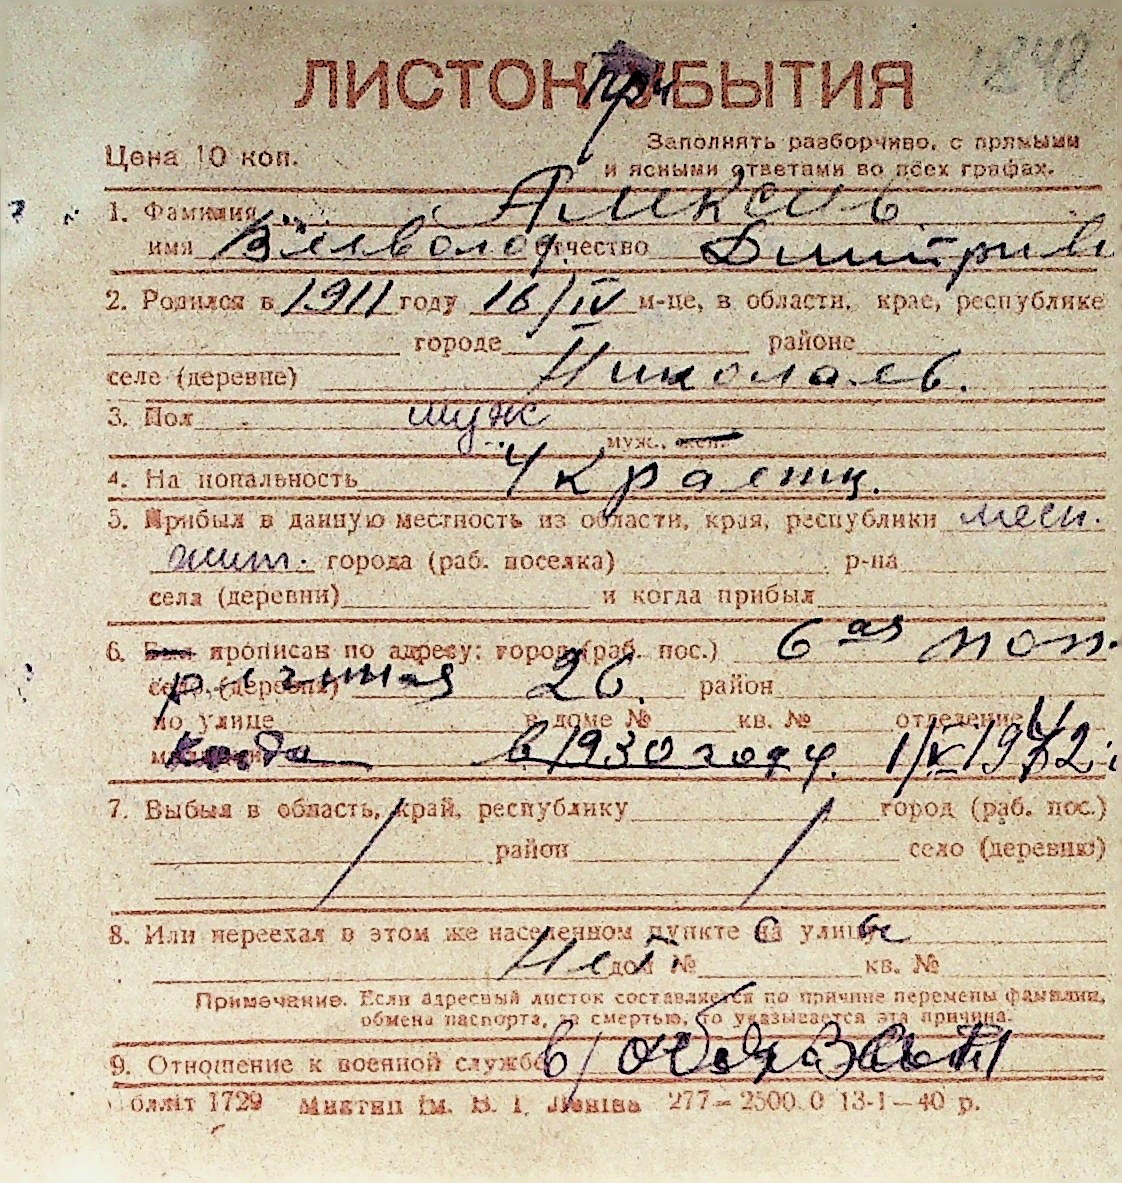 1848
ЛИСТОК ПРИБЫТИЯ
Цена 10 коп. Заполнять разборчиво, с прямыми
и ясными ответами во всех графах.
1. Фамилия Алексов
имя Всеволод отчество Дмитриев
2. Родился в 1911 году 16/IV м-це, в области, крае, республике
городе районе
селе (деревне) Николаев.
3. Пол муж
муж., жен.
4. Национальность Украенц.
5. Прибыл в данную местность из области, края, республики месн.
жит. города (раб. поселка) р-на
села (деревни) и когда прибыл
6. Был прописан по адресу: город (раб. пос.) 6ая поп.
речная 26. район
по улице в доме № кв. № отделение
когда в 1930 году. 1/V 1942 г
7. Выбыл в область, край, республику город (раб. пос.)
район село (деревню)
8. Или переехал в этом же населенном пункте на улицу
Нет. дом № кв. №
Примечание. Если адресный листок составляется по причине перемены фамилии,
обмена паспорта, за смертью, то указывается эта причина.
9. Отношение к военной службе в/обязаный
бліт 1729 Миктип ім. В. І. Леніна 277—2500.0 13-1—40 р.